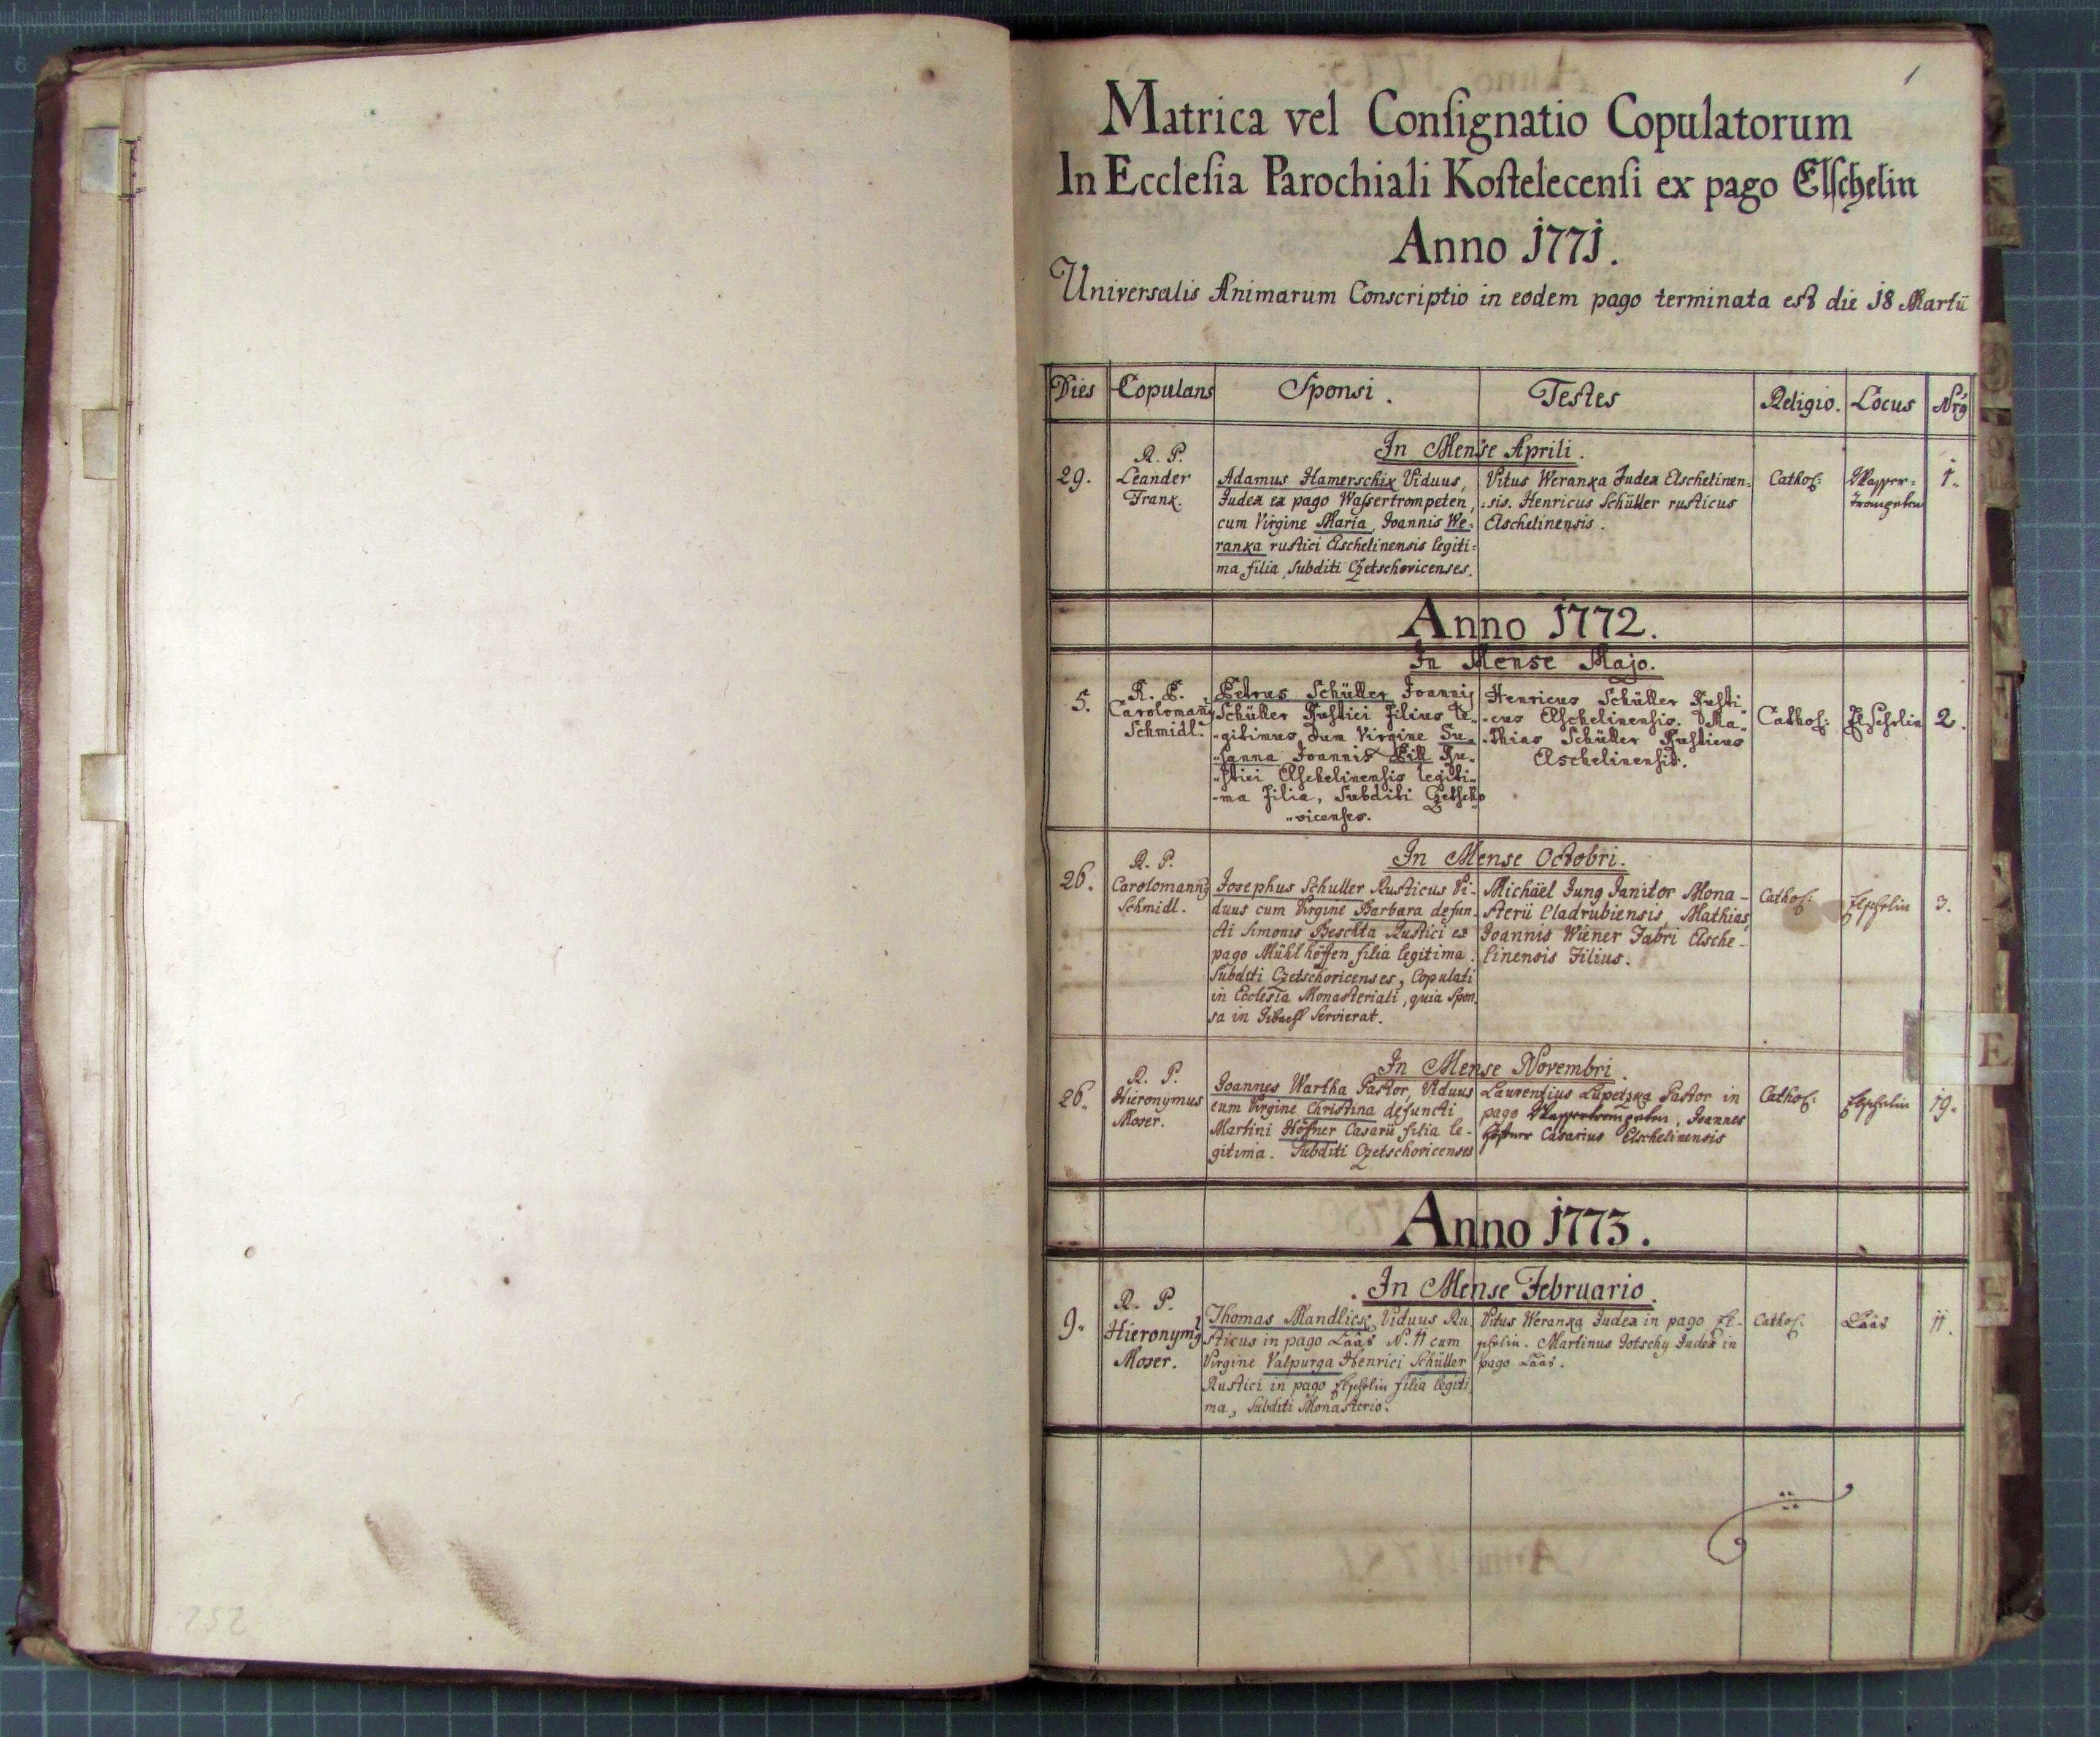 1
Matrica vel Conſignatio Copulatorum
In Eccleſia Parochiali Koſtelecenſi ex pago Elſchelin
Anno 1771.
Universalis Animarum Conscriptio in eodem pago terminata est die 18 Martii
Dies Copulans Sponsi. Testes Religio. Locus Nrg
In Mense Aprili.
29.
R. P.
Leander
Frank.
Adamus Hamerschix Viduus,
Judex ex pago Waſsertrompeten,
cum Virgine Maria, Joannis We:
ranka rustici Elschelinensis legiti:
ma filia, Subditi Czetschovicenses.
Vitus Weranka Judex Elschelinen:
:sis. Henricus Schüller rusticus
Elschelinensis.
Cathol:
Waſſer:
trompeten
1.
Anno 1772.
In Mense Majo.
5.
R. P.
Carolomañ9
Schmidl.
Petrus Schüller Joannis
Schüller Rustici Filius le„
„gitimus, cum Virgine Su„
„sanna Joannis Pill Ru„
„stici Elſchelinensis legiti„
-ma Filia, Subditi Czetscho
„vicenses.
Henricus Schüller Rusti„
„cus Elſchelinensis. Ma„
„thias Schüller Rusticus
Elschelinensis.
Cathol:
Elſchelin
2.
In Mense Octobri.
26.
R. P.
Carolomann9
Schmidl.
Josephus Schuller Rusticus Vi-
duus cum Virgine Barbara defun-
cti Simonis Beschta Rustici ex
pago Mühlhöffen filia legitima.
Subditi Czetschovicenses, Copulati
in Ecclesia Monasteriali, quia Spon
sa in servierat.
Michäel Jung Janitor Mona-
sterii Cladrubiensis, Mathias
Joannis Wiener Fabri Elsche-
linensis Filius.
Cathol:
Elſchelin
3.
In Mense Novembri.
26.
R. P.
Hieronymus
Moser.
Joannes Wartha Pastor, Viduus
cum Virgine Christina defuncti
Martini Höfner Casarii filia le-
gitima. Subditi Czetschovicenses
Laurentius Lupetzka Pastor in
pago Waſſertrompeten, Joannes
Höfner Casarius Elschelinensis
Cathol:
Elſchelin
19.
Anno 1773.
In Mense Februario.
9.
R. P.
Hieronym9
Moser.
Thomas Mandlick Viduus Ru
sticus in pago Lààs N. 11 cum
Virgine Valpurga Henrici Schüller
Rustici in pago Elſchelin filia legiti
ma, Subditi Monasterio.
Vitus Weranka Judex in pago El-
ſchelin. Martinus Gotschy Judex in
pago Lààs.
Cathol:
Lààs
11.
E
H
252